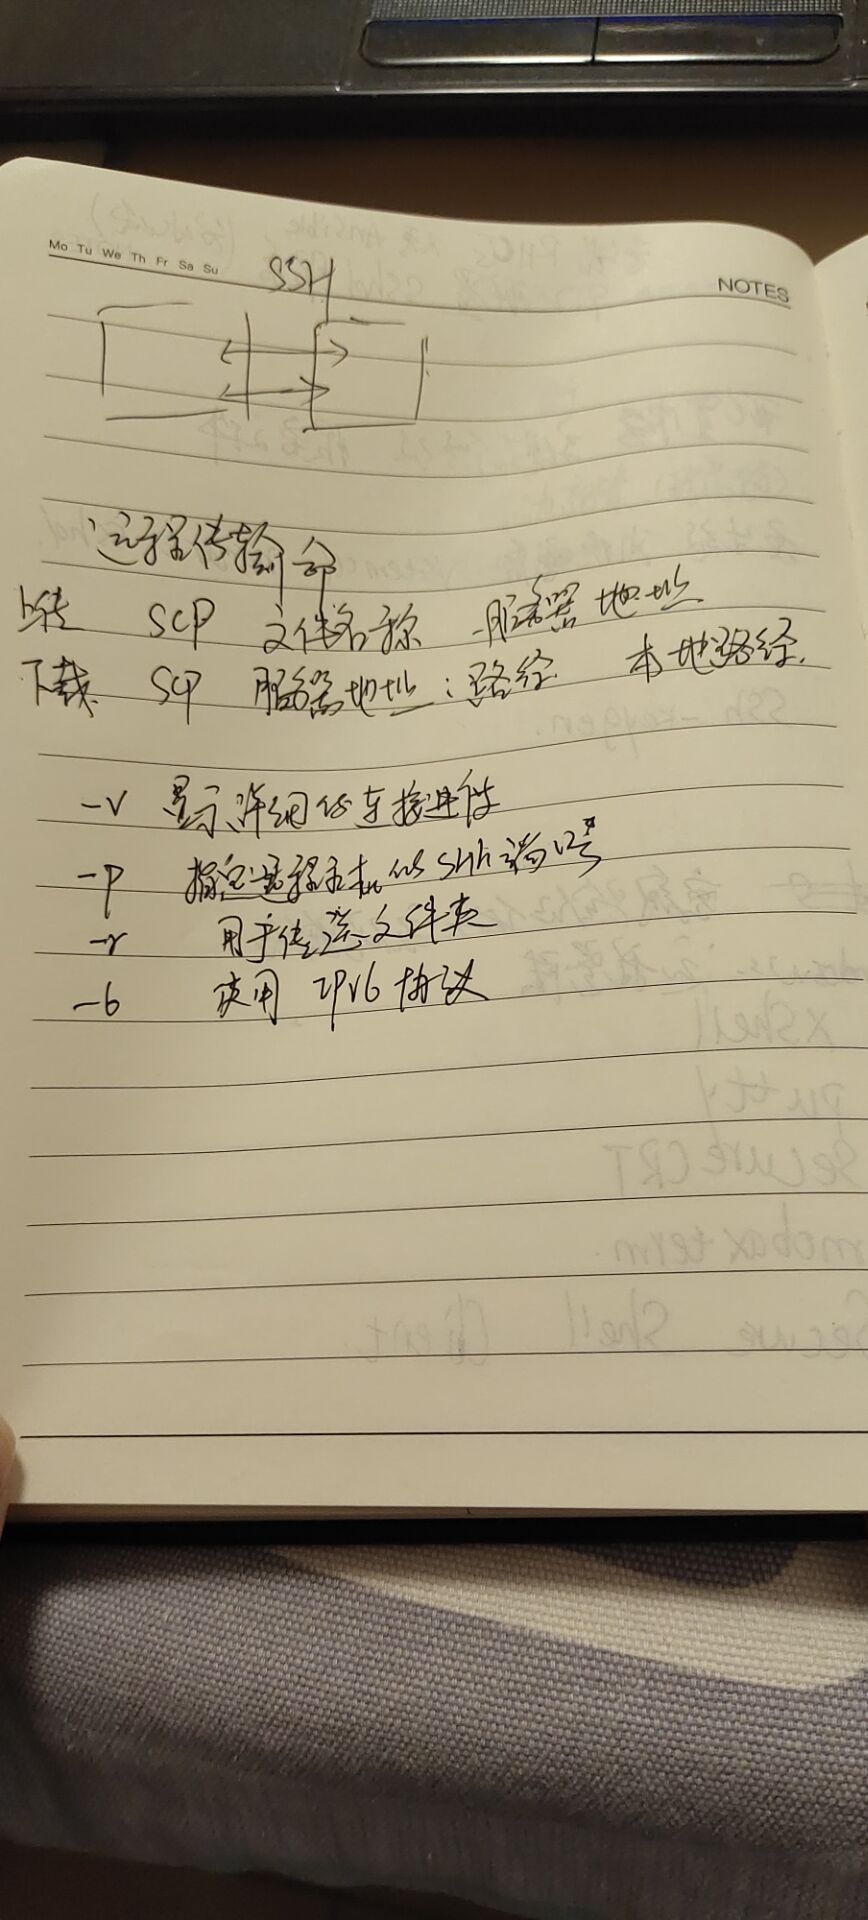 Mo Tu We Th Fr Sa Su
NOTES
SSH
远程传输命
上传 SCP 文件名称 服务器地址
下载 SCP 服务器地址：路径 本地路径.
-v 显示详细的连接进程
-p 指定远程主机的 shh 端口号
-r 用于传送文件夹
-6 使用 IPV6 协议